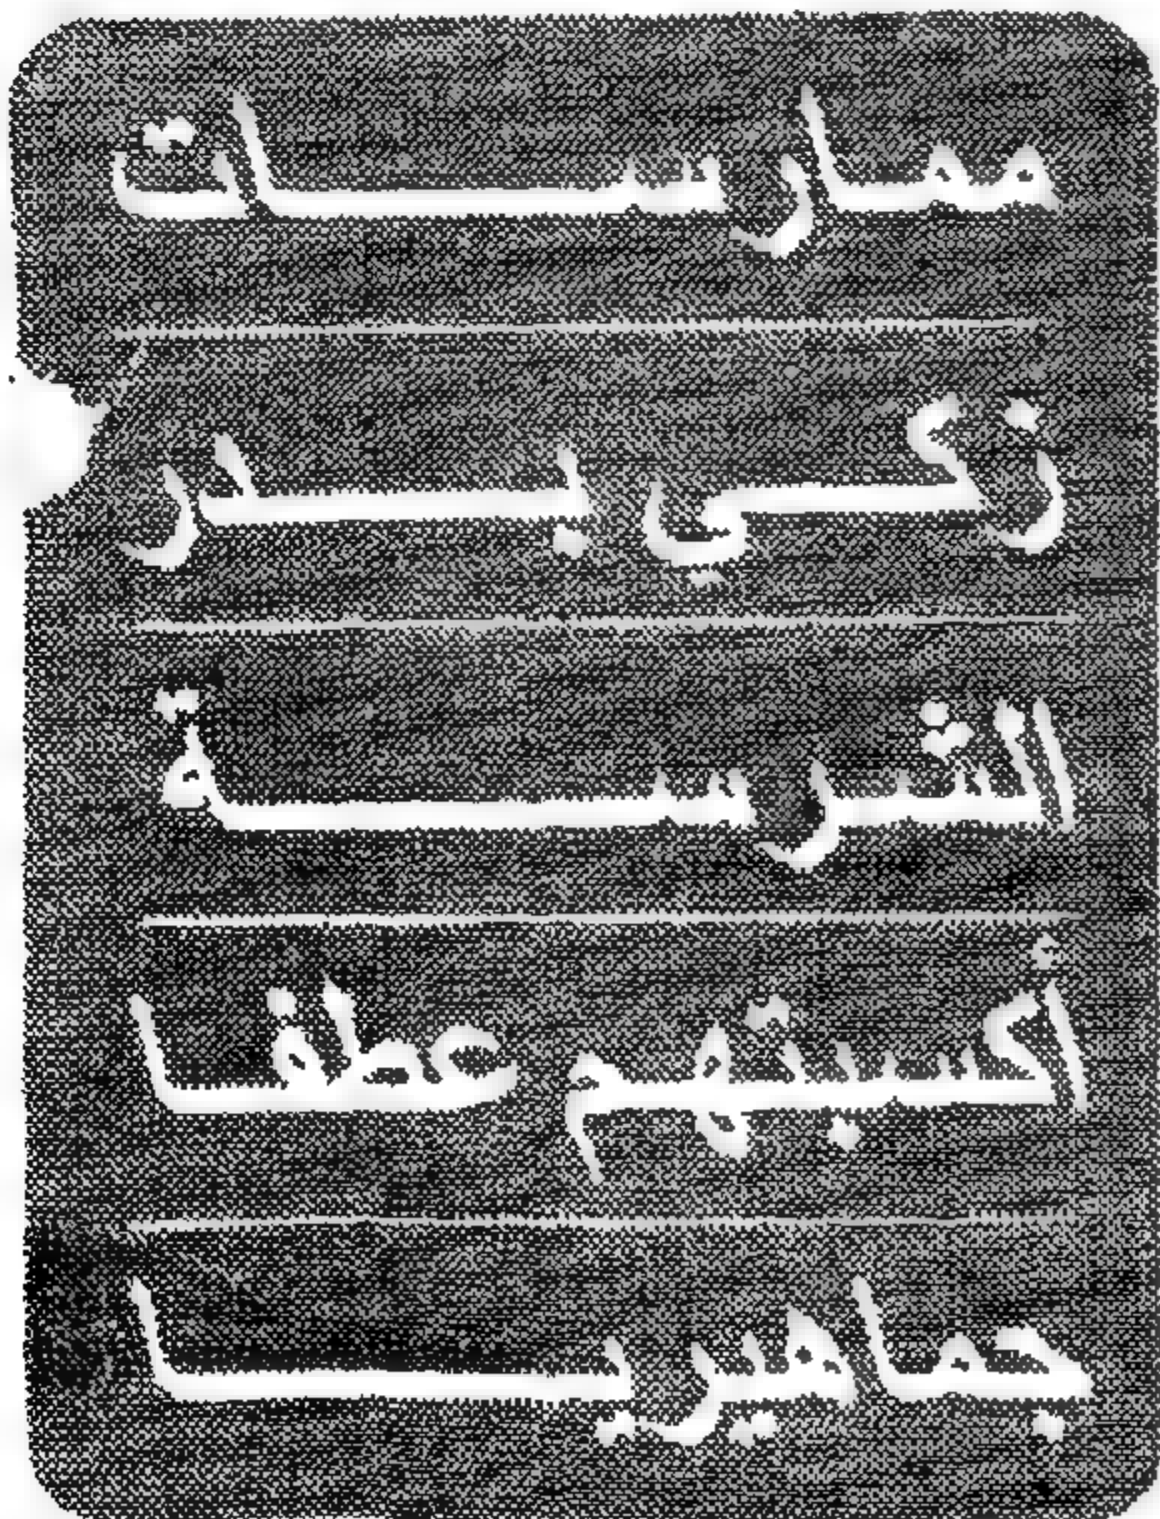 ممارسات
زكى بدر
الشرسة
أكسبتهم عطفا
جماهيريا